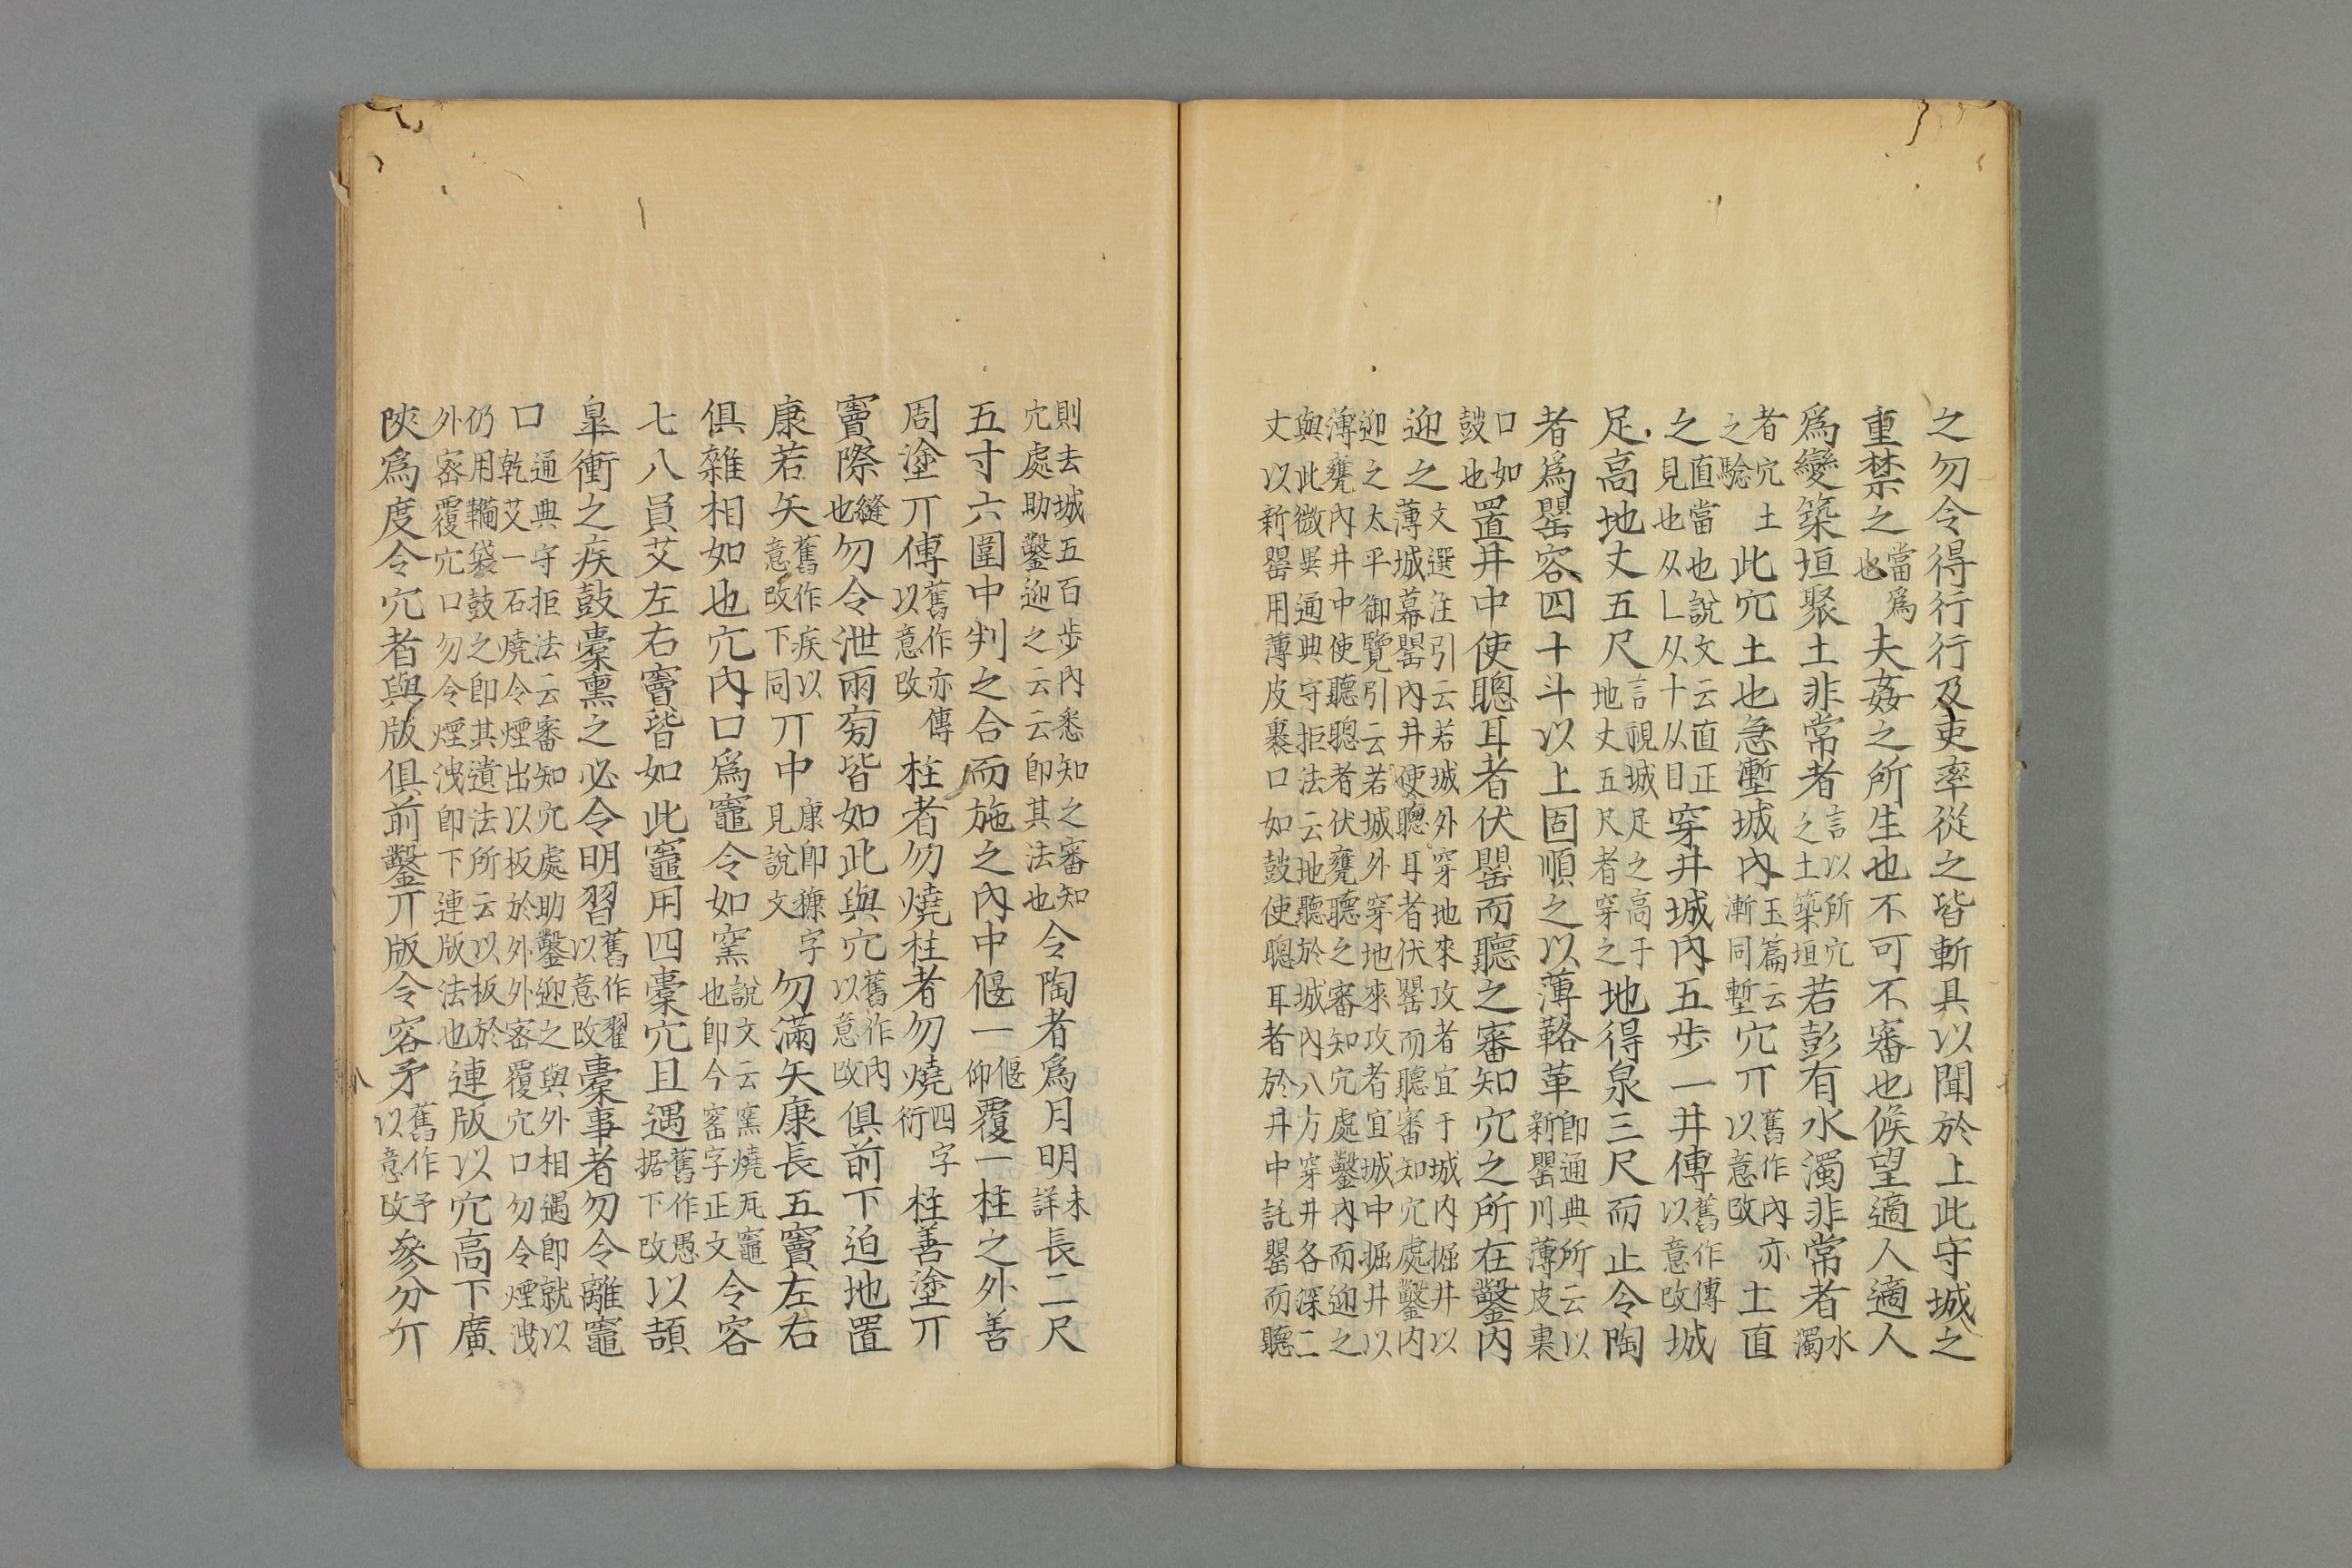 之勿令得行行及吏率從之皆斬具以聞於上此守城之
重禁之當爲也夫姦之所生也不可不審也候望適人適人
爲變築垣聚土非常者言以所穴之土築垣若彭有水濁非常者水濁
者穴土之驗此穴土也急壍城內玉篇云漸同塹穴丌舊作內亦以意改土直
之直當也說文云直正見也从乚从十从目穿井城內五步一井傅舊作傳以意改城
足高地丈五尺言視城足之高于地丈五尺者穿之地得泉三尺而止令陶
者爲罌容四十斗以上固順之以薄䩭革卽通典所云以新罌川薄皮裹
口如鼓也置井中使聰耳者伏罌而聽之審知穴之所在鑿內
迎之文選注引云若城外穿地來攻者宜于城內掘井以薄城幕罌內井使聰耳者伏罌而聽審知穴處鑿內
迎之太平御覽引云若城外穿地來攻者宜城中掘井以薄甕內井中使聽聰者伏甕聽之審知穴處鑿內而迎之
與此微異通典守拒法云地聽於城內八方穿井各深二丈以新罌用薄皮裹口如鼓使聰耳者於井中託罌而聽
則去城五百步內悉知之審知穴處助鑿迎之云云卽其法也令陶者爲月明未詳長二尺
五寸六圍中判之合而施之內中偃一偃仰覆一柱之外善
周塗丌傅舊作亦傳以意改柱者勿燒柱者勿燒四字衍柱善塗丌
竇際縫也勿令泄兩旁皆如此與穴舊作內以意改俱前下迫地置
康若矢舊作疾以意改下同丌中康卽穅字見說文勿滿矢康長五竇左右
俱雜相如也穴內口爲竈令如窯說文云窯燒瓦竈也卽今窰字正文令容
七八員艾左右竇皆如此竈用四橐穴且遇舊作愚据下改以頡
皐衝之疾鼓橐熏之必令明習舊作翟以意改橐事者勿令離竈
口通典守拒法云審知穴處助鑿迎之與外相遇卽就以乾艾一石燒令煙出以板於外外密覆穴口勿令煙洩
仍用鞴袋鼓之卽其遺法所云以板於外密覆穴口勿令煙洩卽下連版法也連版以穴高下廣
陝爲度令穴者與版俱前鑿丌版令容矛舊作予以意改參分丌